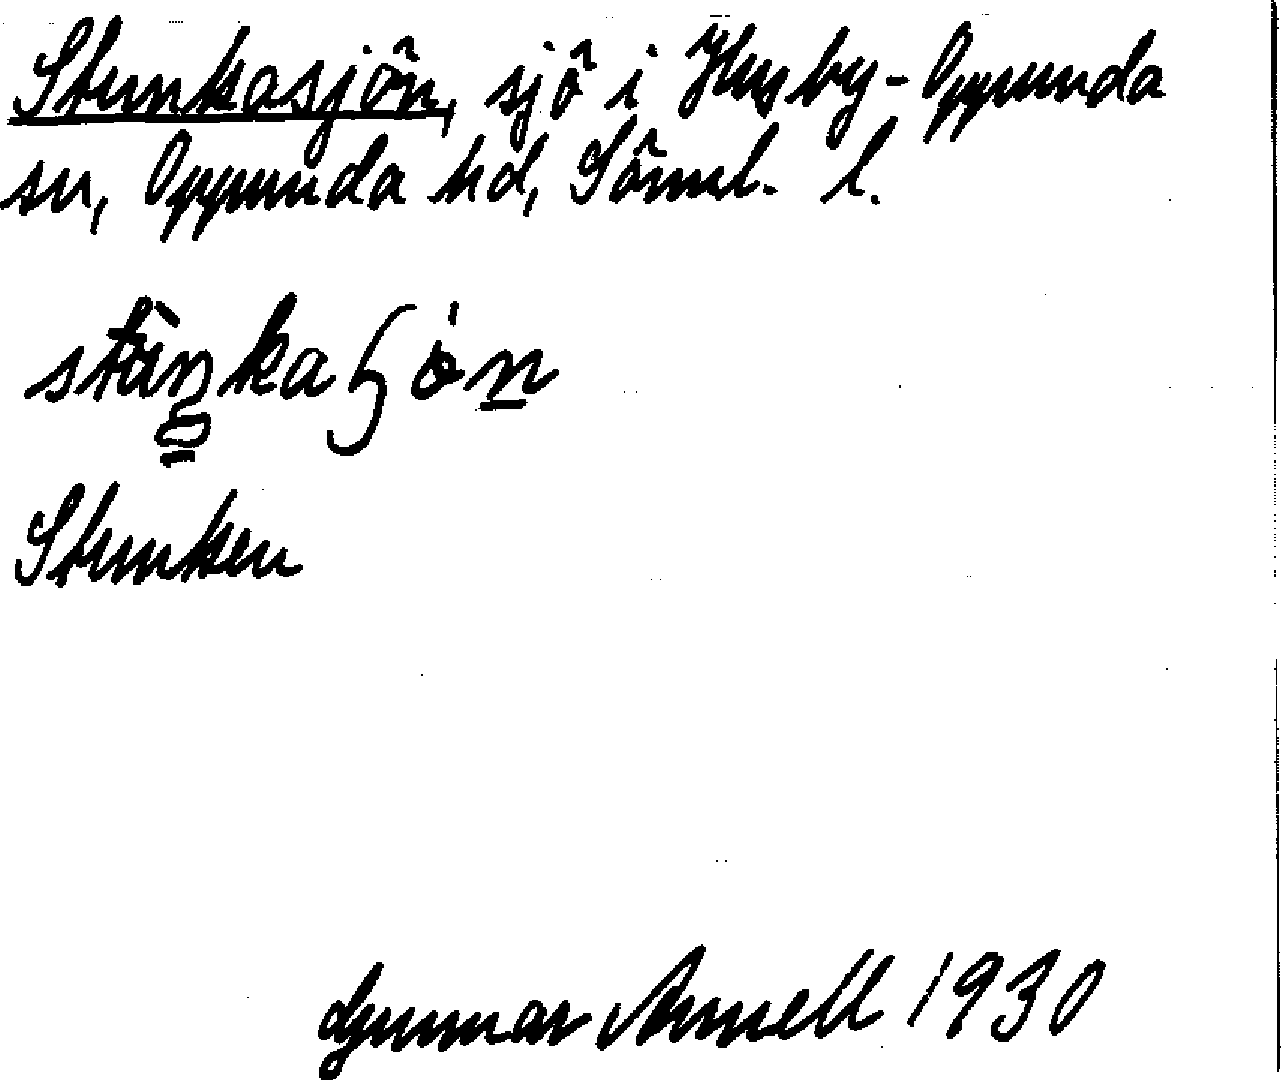 Stunkasjön, sjö i Husby-Oppunda
sn, Oppunda hd, Söml. l.
Stunken
Gunnar Arnell 1930